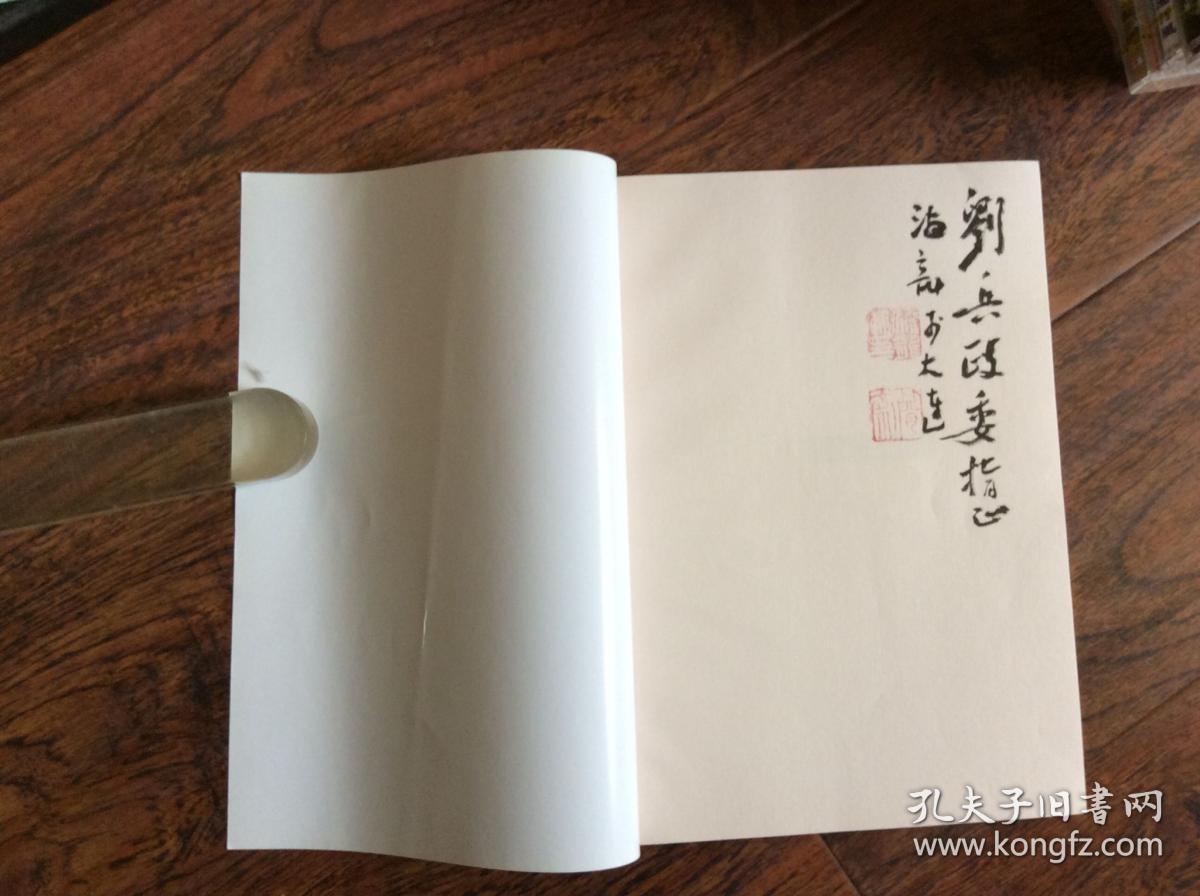 劉兵政委指正
于大连
孔夫子旧書网
www.kongfz.com